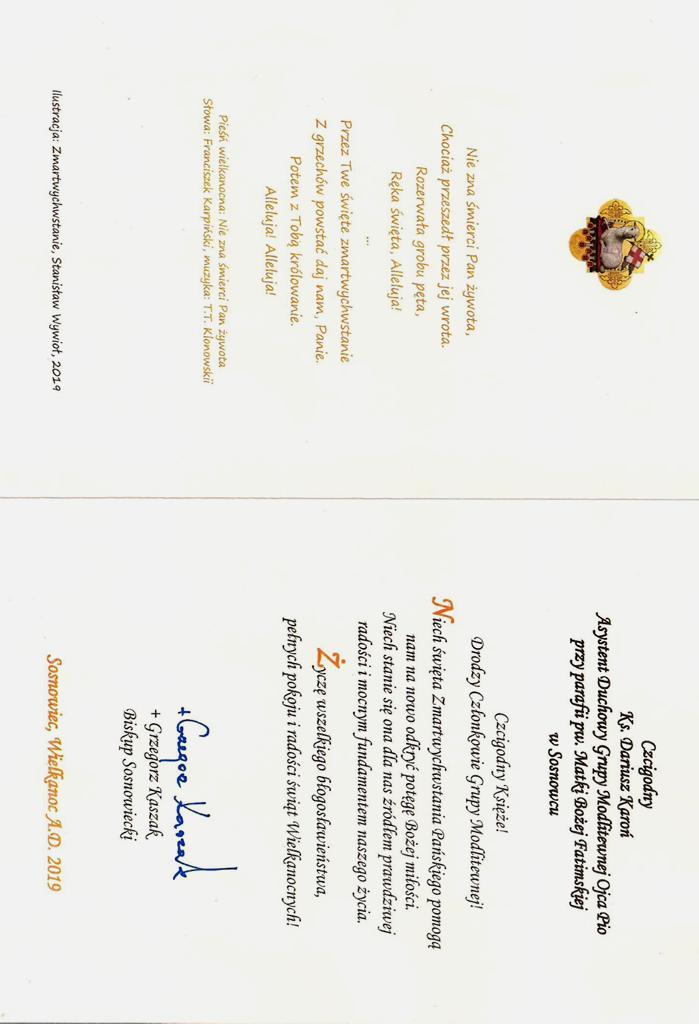 Nie zna śmierci Pan żywota,
Chociaż przeszedł przez jej wrota.
Rozerwała grobu pęta,
Ręka święta, Alleluja!
...
Przez Twe święte zmartwychwstanie
Z grzechów powstać daj nam, Panie.
Potem z Tobą królowanie.
Alleluja! Alleluja!
Pieśń wielkanocna: Nie zna śmierci Pan żywota
Słowa: Franciszek Karpiński, muzyka: T.T. Klonowskii
Ilustracja: Zmartwychwstanie, Stanisław Wywioł, 2019
Czcigodny
Ks. Dariusz Karoń
Asystent Duchowy Grupy Modlitewnej Ojca Pio
przy parafii pw. Matki Bożej Fatimskiej
w Sosnowcu
Czcigodny Księże!
Drodzy Członkowie Grupy Modlitewnej!
Niech święta Zmartwychwstania Pańskiego pomogą
nam na nowo odkryć potęgę Bożej miłości.
Niech stanie się ona dla nas źródłem prawdziwej
radości i mocnym fundamentem naszego życia.
Życzę wszelkiego błogosławieństwa,
pełnych pokoju i radości świąt Wielkanocnych!
+ Grzegorz Kaszak
+ Grzegorz Kaszak
Biskup Sosnowiecki
Sosnowiec, Wielkanoc A.D. 2019